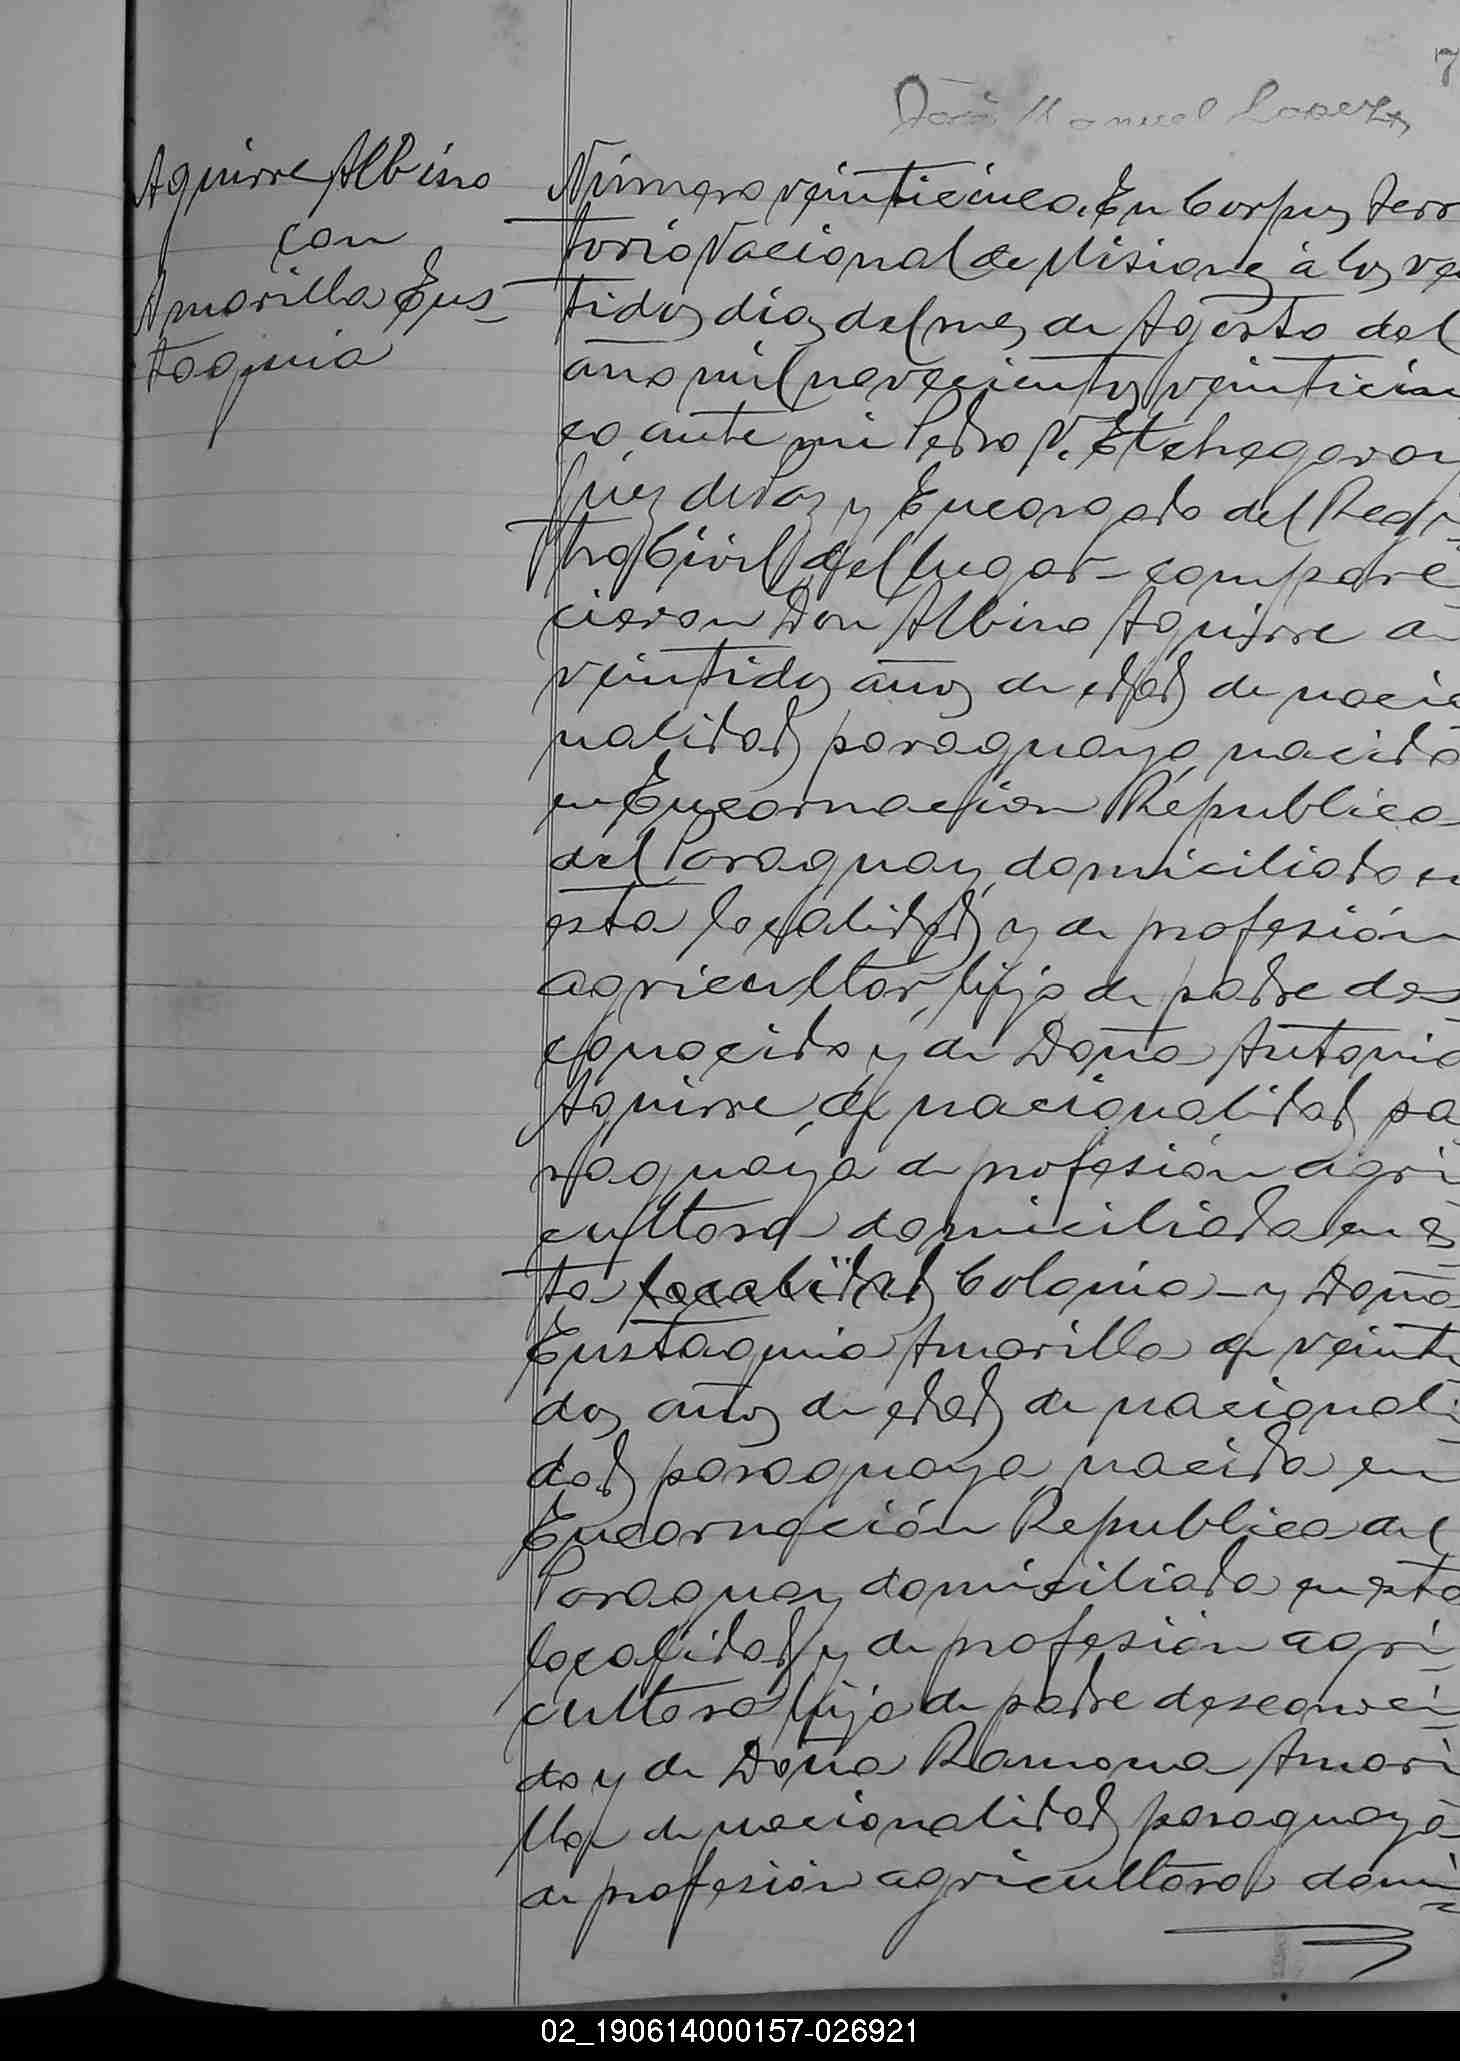 7
José Manuel Lopez
Aguirre Albino
con
Amarilla Eus-
taquia
Número veinticinco. En Corpus, terr
torio Nacional de Misiones, á los ve
tidos dias del mes de Agosto del
año mil novecientos veinticin
co ante mi Pedro V. Etchegaray
Juez de Paz y Encargado del Regis-
tro Civil del lugar - compare
cieron Don Albino Aguirre de
veintidos años de edad, de nacio
nalidad paraguaya, nacido
en Encarnacion Republica
del Paraguay, domiciliado en
esta localidad y de profesión
agricultor, hijo de padre des
conocido y de Doña Antonia
Aguirre, de nacionalidad pa
raguaya de profesión agri
cultora domiciliada en es
ta localidad Colonia - y Doña
Eustaquia Amarilla de veinti
dos años de edad de nacionali
dad paraguaya, nacida en
Encarnación Republica del
Paraguay domiciliada en esta
localidad y de profesión agri
cultora hija de padre desconoci
do y de Doña Ramona Amari
lla de nacionalidad paraguaya
de profesión agricultora domi
02_190614000157-026921